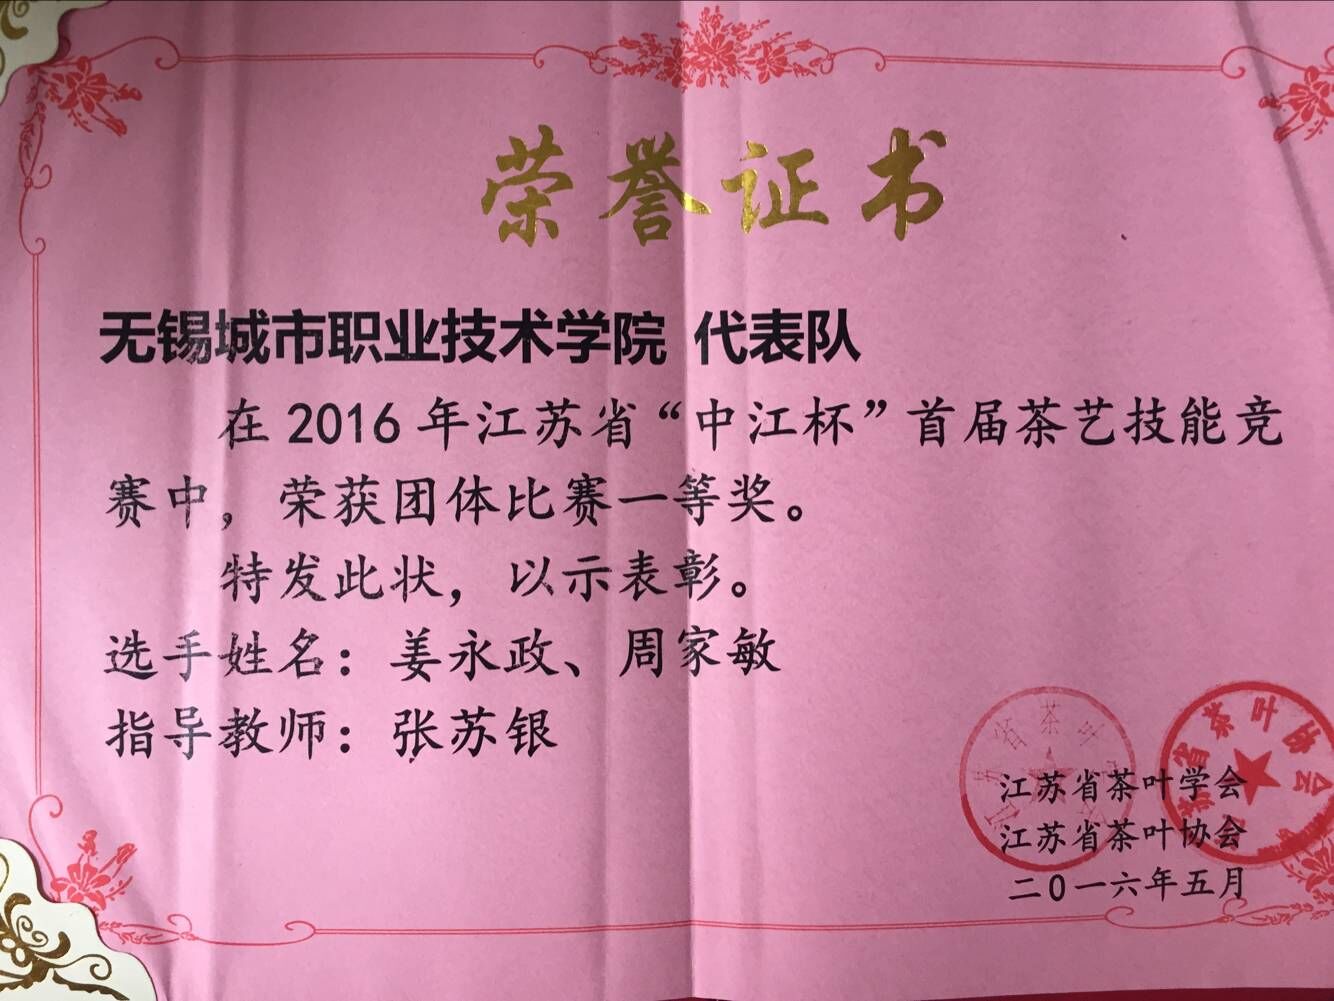 荣誉证书
无锡城市职业技术学院 代表队
在 2016 年江苏省“中江杯”首届茶艺技能竞
赛中，荣获团体比赛一等奖。
特发此状，以示表彰。
选手姓名：姜永政、周家敏
指导教师：张苏银
江苏省茶叶学会
江苏省茶叶协会
二0一六年五月
省茶叶协会